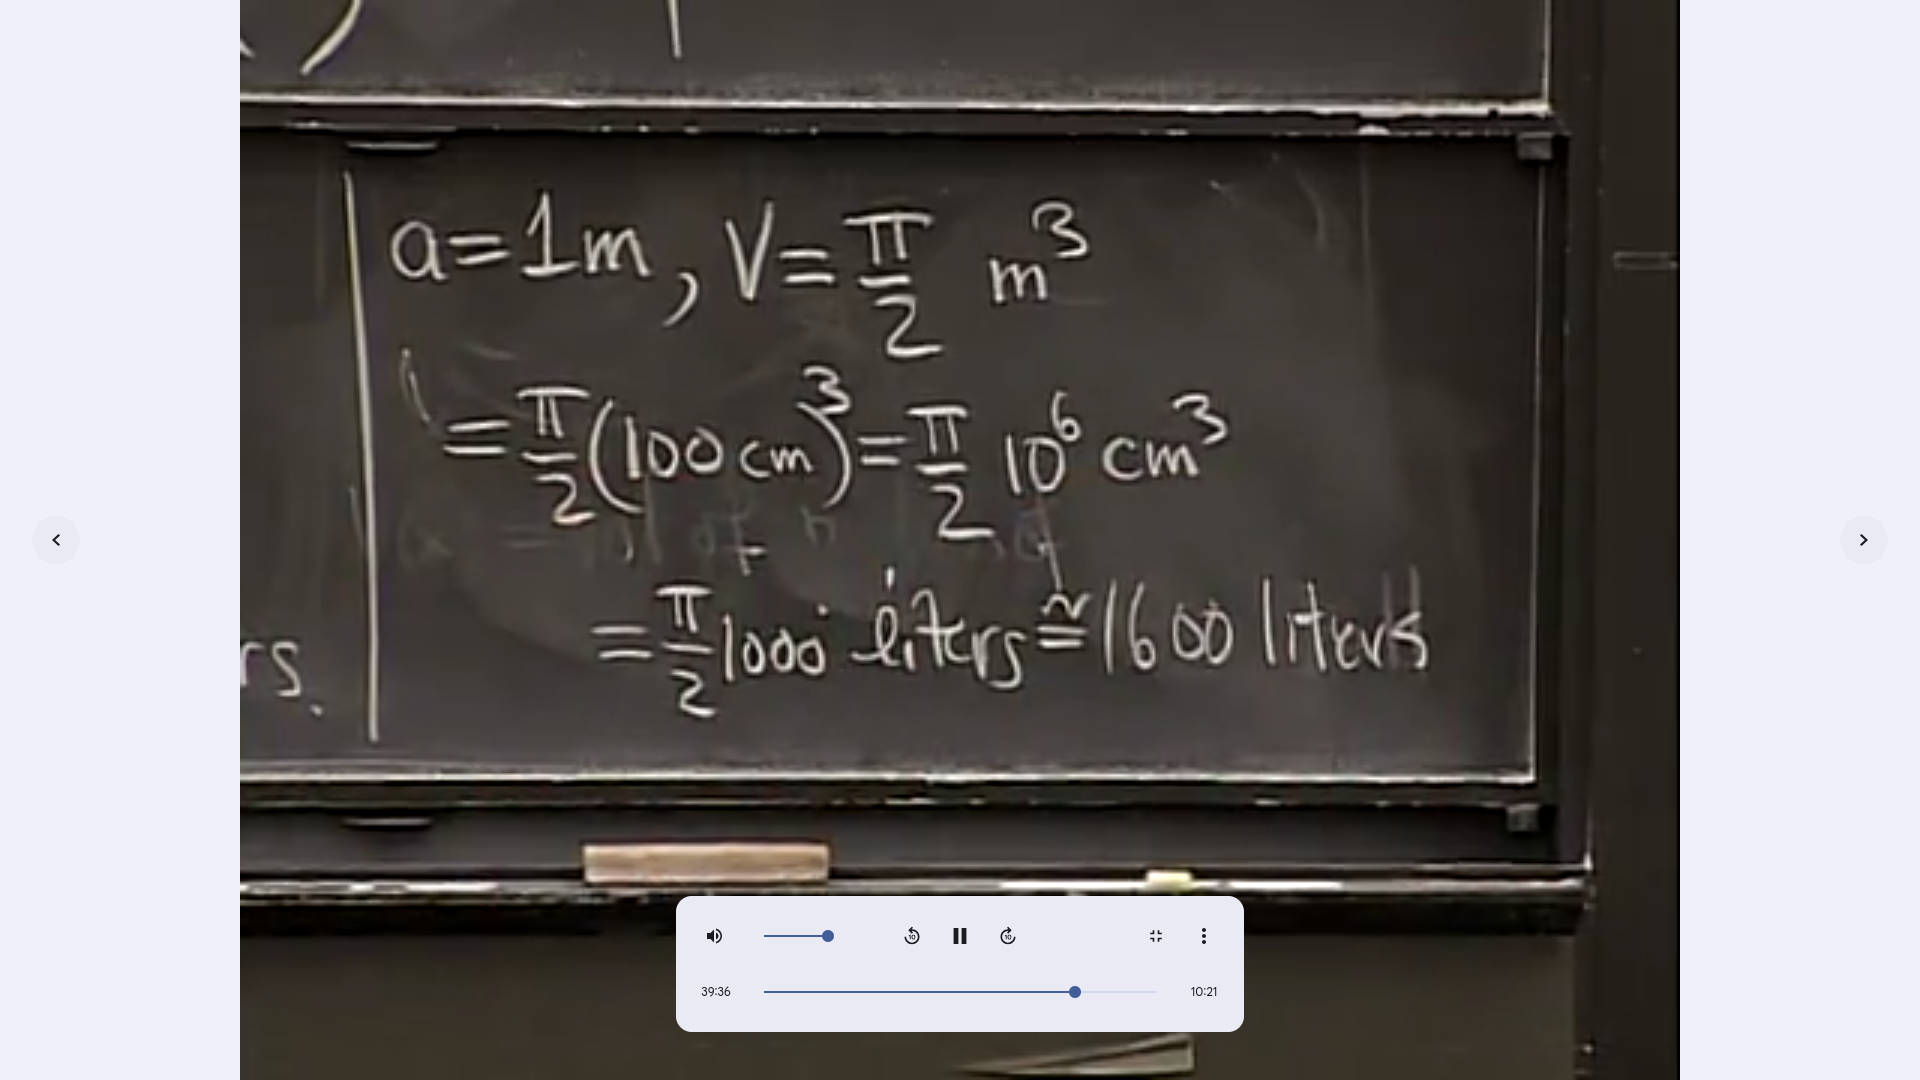 a=1m, V=π/2 m³
=π/2(100 cm)³=π/2 10⁶ cm³
=π/2 1000 liters≅1600 liters
rs.
10
10
39:36
10:21